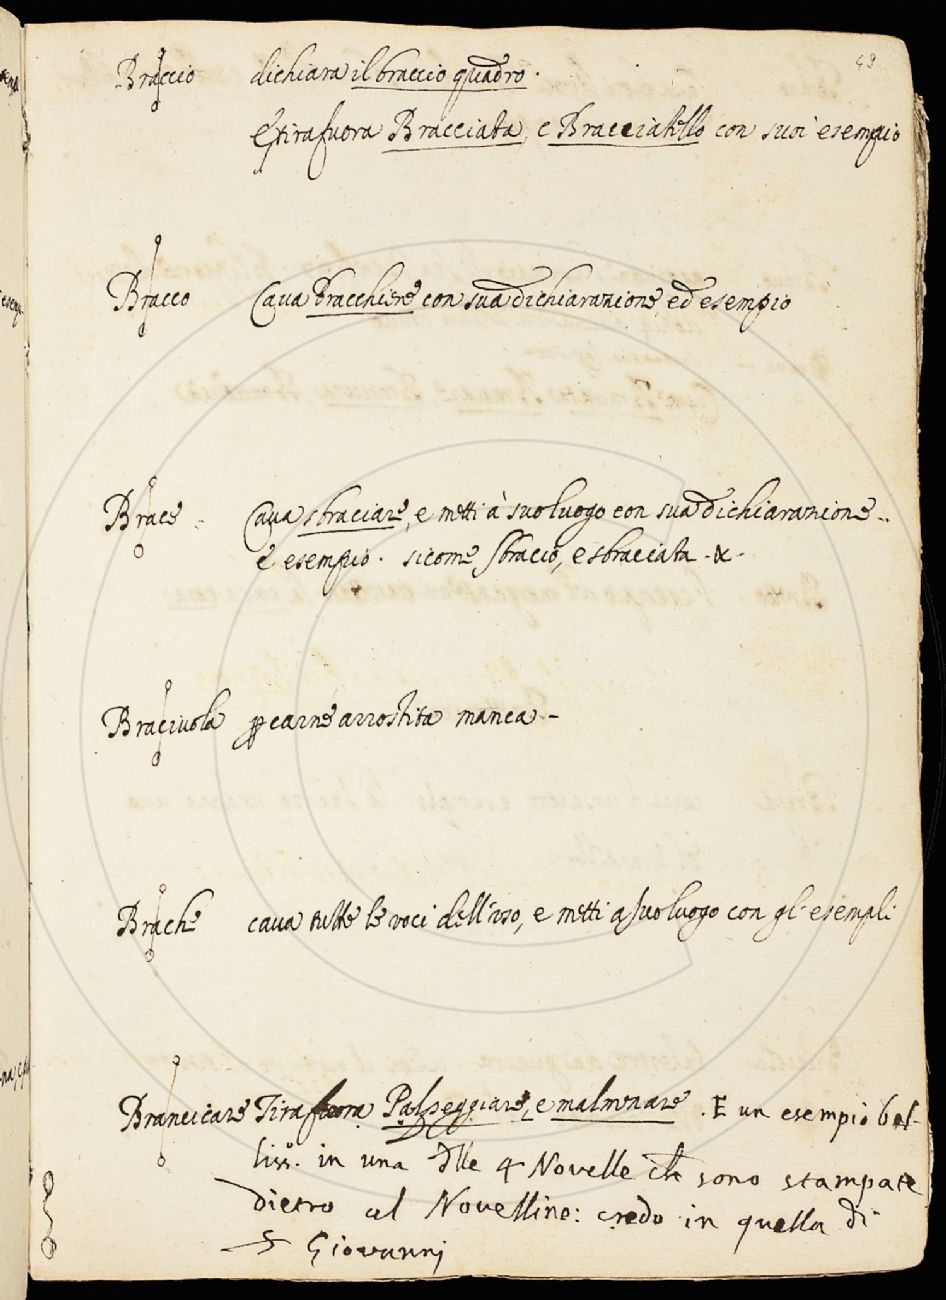 49
Braccio dichiara il braccio quadro.
E tira fuora Bracciata, e Bracciatello con suoi esempio
Bracco Caua bracchiere con sua dichiarazione, ed esempio
Brace Caua sbraciare, e metti à suo luogo con sua dichiarazione..
e esempio. sicome, sbracio, e sbraciata. &.
Braciuola carne arrostita manca -
Brache caua tutte le voci dell'uso, e metti a suo luogo con gl'esempli
Brancicare Tira fuora Palpeggiare, e malmenare. E un esempio bel-
liss.o in una dlle 4 Novelle che sono stampate
dietro al Novelline: credo in quella di
S Giovanni